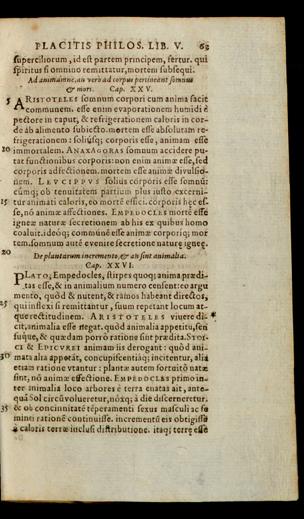 PLACITIS PHILOS. LIB. V. 63
superciliorum, id est partem principem, fertur. qui
spiritus si omnino remittatur, mortem subsequi.
An id animæne, an verò ad corpus pertineant somnus
& mors. Cap. XXV.
5 ARISTOTELES somnum corpori cum anima facit
communem. esse enim evaporationem humidi è
pectore in caput, & refrigerationem caloris in cor-
de ab alimento subiecto. mortem esse absolutam re-
frigerationem: soliúsq; corporis esse, animam esse
20 immortalem. ANAXAGORAS somnum accidere pu-
tat functionibus corporis: non enim animæ esse, sed
corporis adfectionem. mortem esse animæ divulsio-
nem. LEVCIPPVS solius corporis esse somnū:
cúmq; ob tenuitatem partium plus iusto excerni-
15 tur animati caloris, eo mortē effici. corporis hęc es-
se, nō animæ affectiones. EMPEDOCLES mortē esse
igneæ naturæ secretionem ab his ex quibus homo
coaluit. ideóq; communē esse animæ corporiq; mor
tem. somnum autē evenire secretione naturę igneę.
20 De plantarum incremento, & an sint animalia.
Cap. XXVI.
PLATO, Empedocles, stirpes quoq; anima prædi-
tas esse, & in animalium numero censent: eo argu
mento, quòd & nutent, & ramos habeant directos,
25 qui inflexi si remittantur, suum repetant locum at-
que rectitudinem. ARISTOTELES vivere di-
cit, animalia esse negat. quòd animalia appetitu, sen
suque, & quædam porrò ratione sint prædita. STOI-
CI & EPICVREI animam iis derogant: quòd ani-
30 mata alia appetāt, concupiscentiáq; incitentur, alia
etiam ratione vtantur: plantæ autem fortuitò natæ
sint, nō animæ effectione. EMPEDOCLES primo in-
ter animalia loco arbores è terra enatas ait, ante-
quā Sol circū volueretur, nóxq; à die discerneretur.
35 & ob concinnitatē tēperamenti sexus masculi ac fe
mininI rationē continuisse. incrementū eis obtigisse
à caloris terræ inclusi distributione. itaq; terrę esse